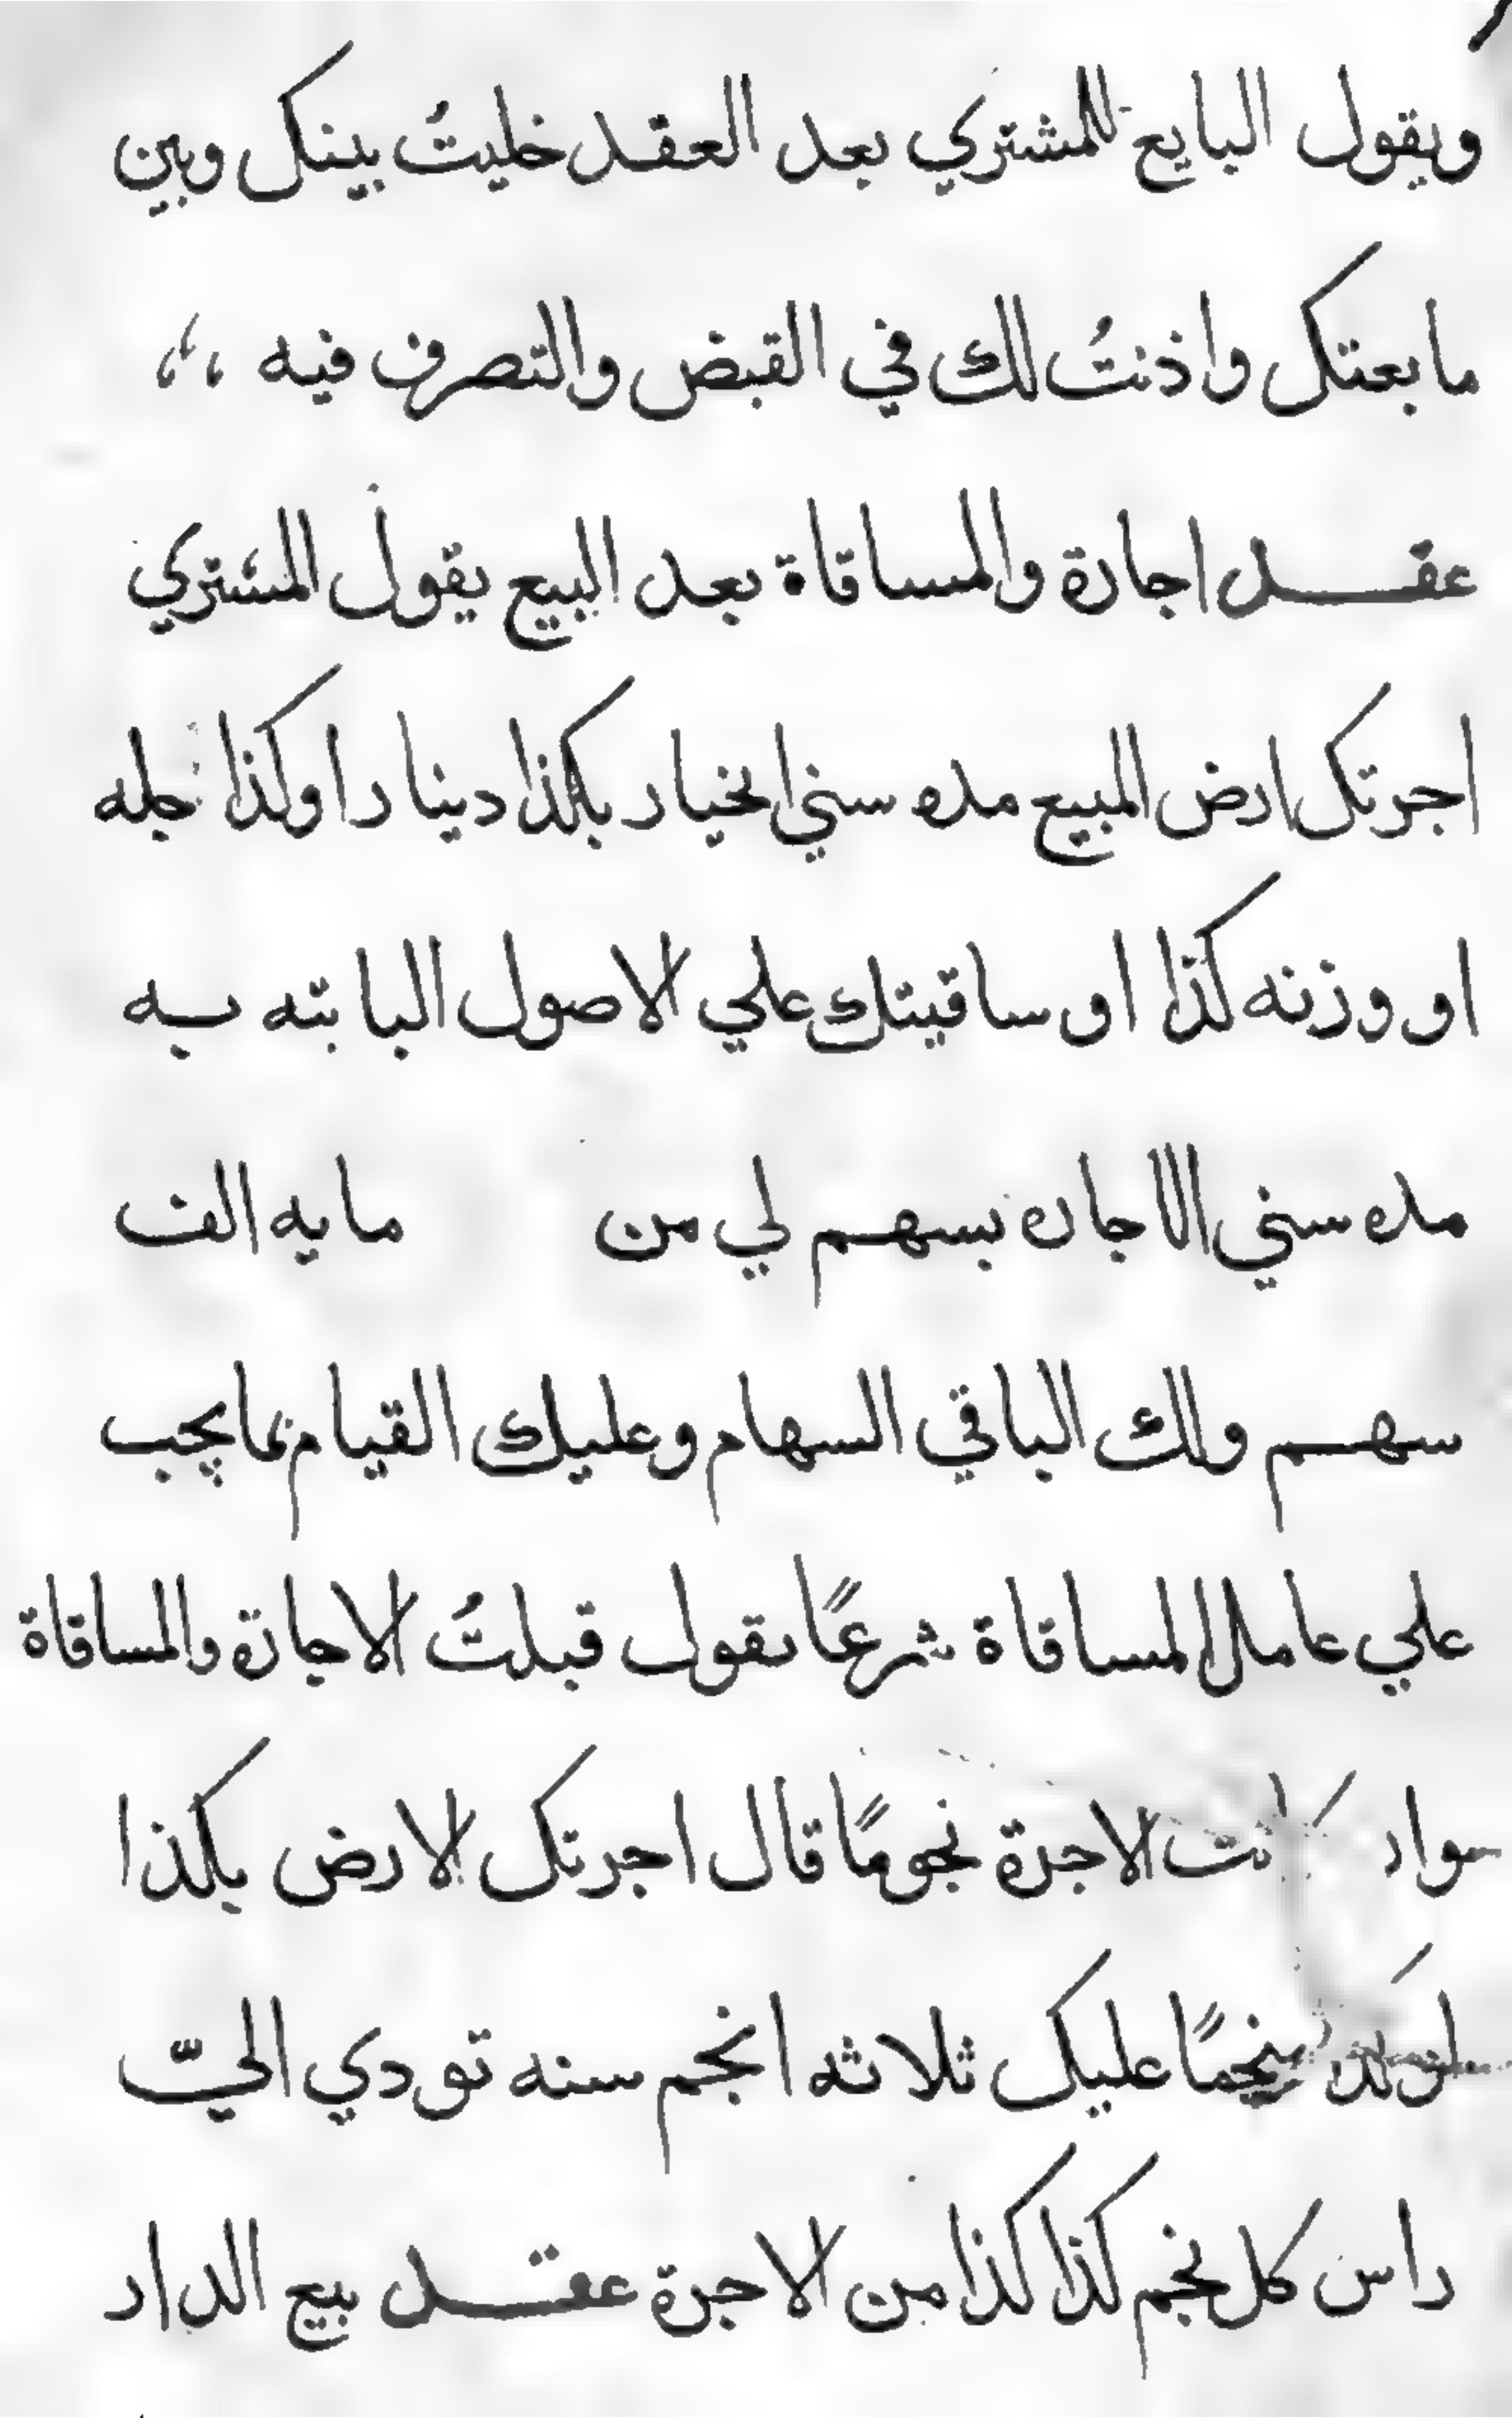 ويقول البايع للمشتري بعد العقد خليتُ بينك وبين
ما بعتك واذنتُ لك في القبض والتصرف فيه
عقد اجارة والمساقاة بعد البيع يقول المشتري
اجرتك ارض المبيع مده سني الخيار بكذا دينارا وكذا جمله
او وزنه كذا او ساقيتك علي الاصول البابته به
مده سني الاجاره بسهم لي من مايه الف
سهم ولك الباقي السهام وعليك القيام بما يجب
علي عامل المساقاة شرعًا يقول قبلتُ الاجارة والمساقاة
الاجرة نجومًا قال اجرتك الارض بكذا
منجمًا عليك ثلاثه انجم سنه تودي اليّ
راس كل نجم كذا كذا من الاجرة عقد بيع الدار